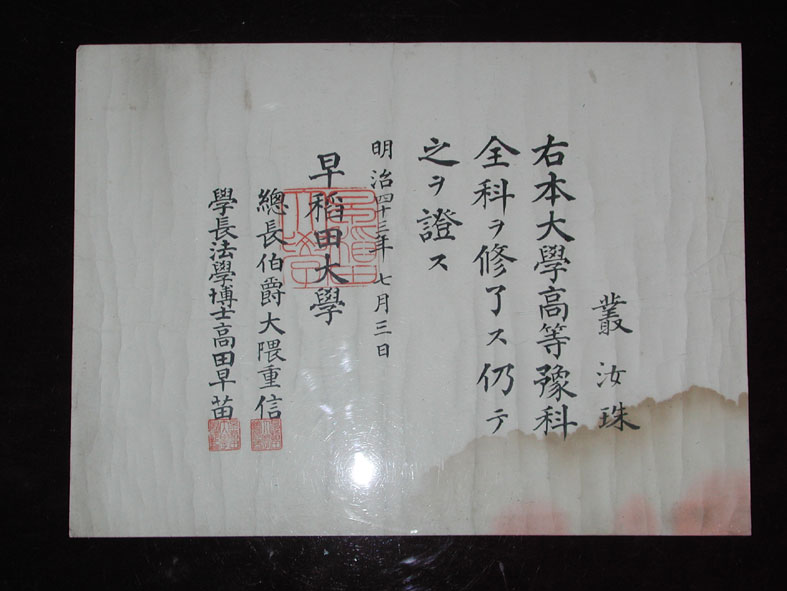 叢汝珠
右本大學高等豫科
全科ヲ修了ス仍テ
之ヲ證ス
明治四十三年七月三日
早稻田大學
總長伯爵大隈重信
學長法學博士高田早苗